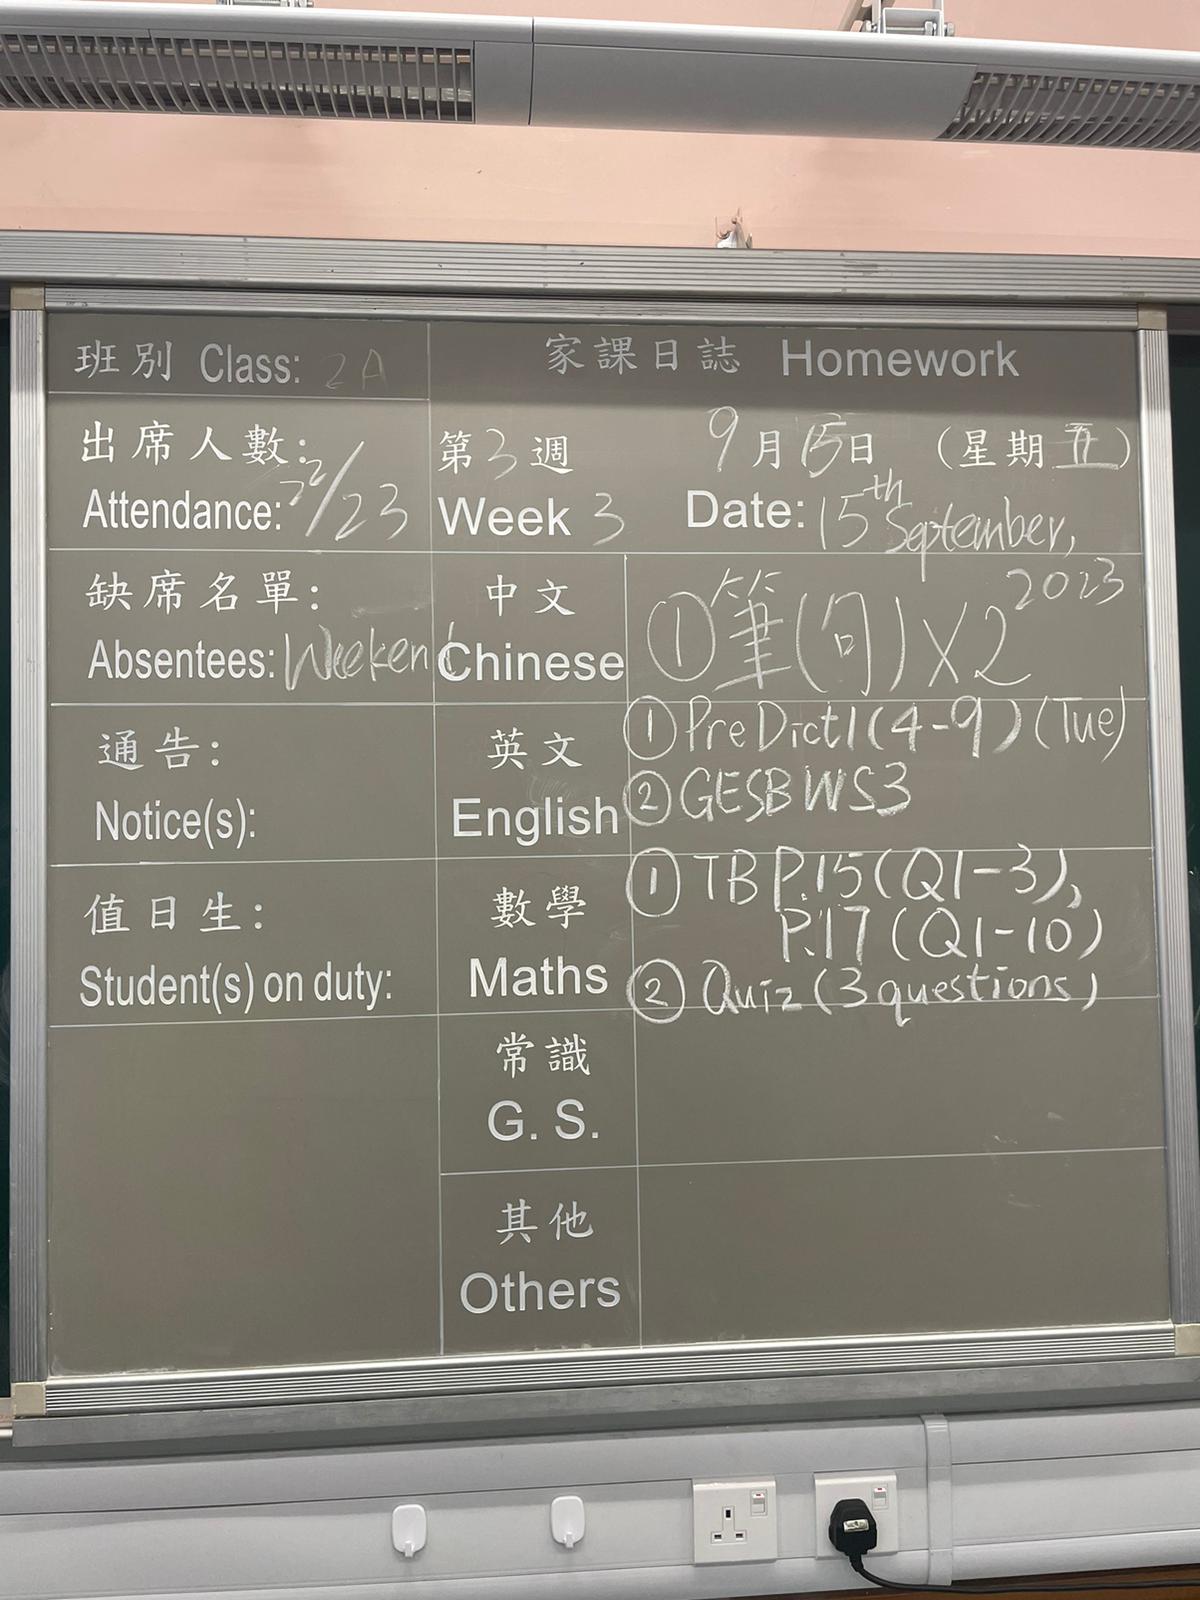 班別 Class: 2A
家課日誌 Homework
出席人數:
Attendance: 22/23
第3週
Week 3
9月15日 (星期五)
Date: 15th September,
2023
缺席名單:
Absentees: Weekend
中文
Chinese
①筆(句)X2
通告:
Notice(s):
英文
English
①PreDict1(4-9)(Tue)
②GESBWS3
值日生:
Student(s) on duty:
數學
Maths
①TB P.15(Q1-3),
P.17(Q1-10)
②Quiz(3questions)
常識
G. S.
其他
Others